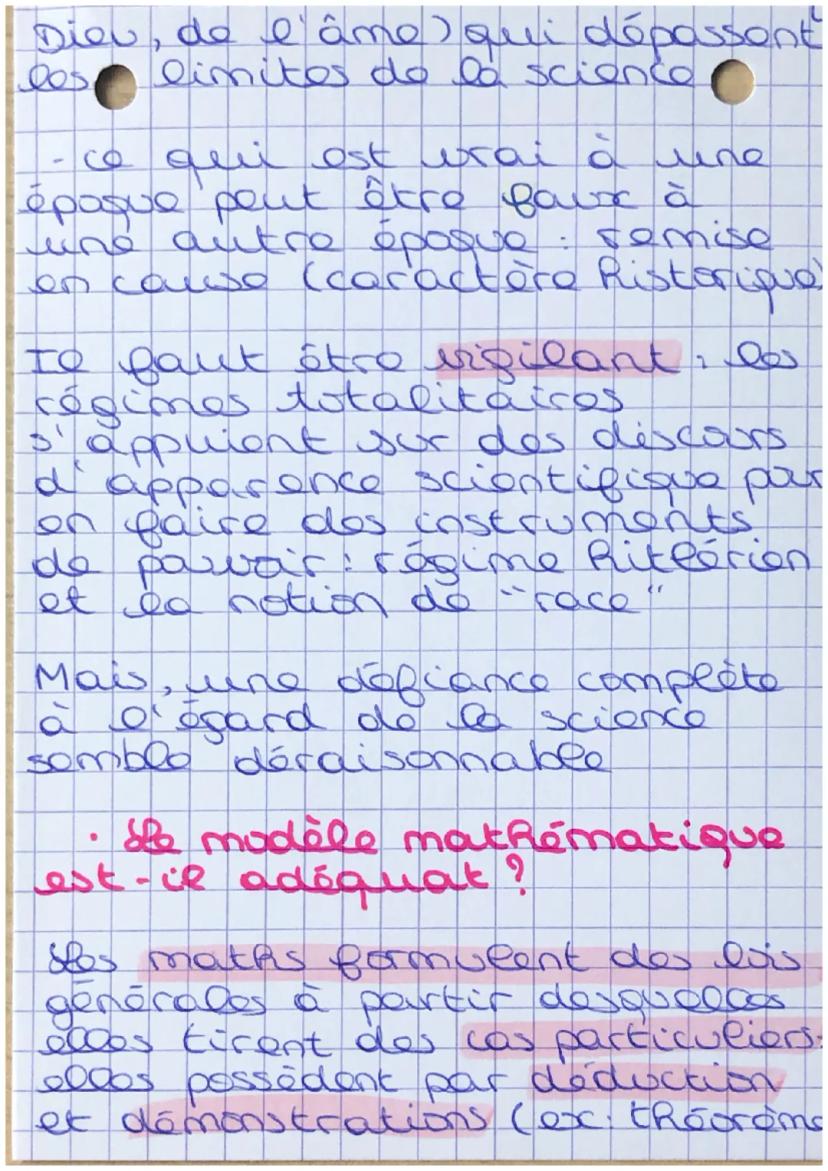 Dieu, de l'âme) qui dépassent
les limites de la science
- ce qui est vrai à une
époque peut être faux à
une autre époque : remise
en cause (caractère historique)
Il faut être vigilant : les
régimes totalitaires
s'appuient sur des discours
d'apparence scientifique pour
en faire des instruments
de pouvoir : régime hitlérien
et la notion de "race"
Mais, une défiance complète
à l'égard de la science
semble déraisonnable
· Le modèle mathématique
est-il adéquat ?
Les maths formulent des lois
générales à partir desquelles
elles tirent des cas particuliers :
elles possèdent par déduction
et démonstrations (ex : théorème